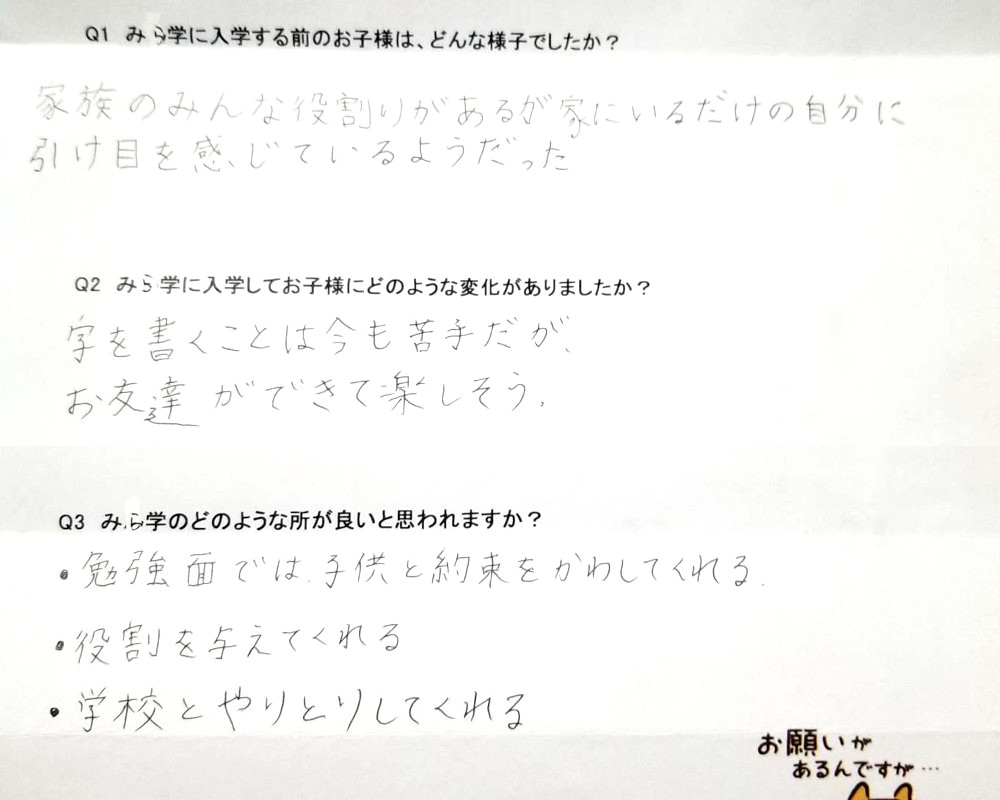 Q1 みら学に入学する前のお子様は、どんな様子でしたか？
家族のみんな役割りがあるが家にいるだけの自分に
引け目を感じているようだった
Q2 みら学に入学してお子様にどのような変化がありましたか？
字を書くことは今も苦手だが、
お友達ができて楽しそう。
Q3 みら学のどのような所が良いと思われますか？
・勉強面では、子供と約束をかわしてくれる。
・役割を与えてくれる
・学校とやりとりしてくれる
お願いが
あるんですが…